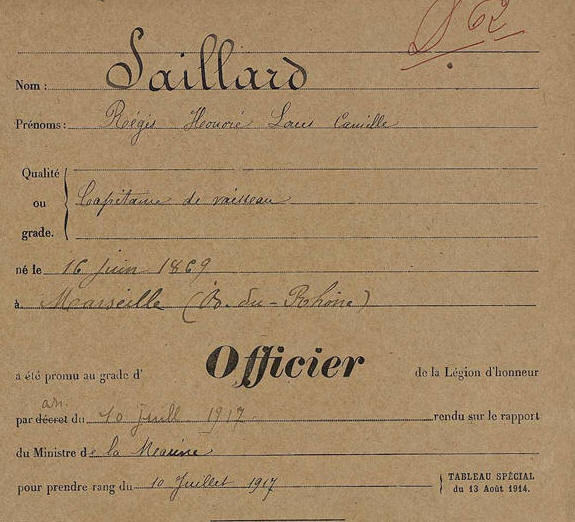 S 62
Nom : Saillard
Prénoms : Régis Honoré Louis Camille
Qualité
ou
grade.
Capitaine de vaisseau
né le 16 Juin 1869
à Marseille (B. du-Rhône)
a été promu au grade d' Officier de la Légion d'honneur
arr.
par décret du 10 Juill. 1917 rendu sur le rapport
du Ministre de la Marine
pour prendre rang du 10 Juillet 1917
TABLEAU SPÉCIAL
du 13 Août 1914.